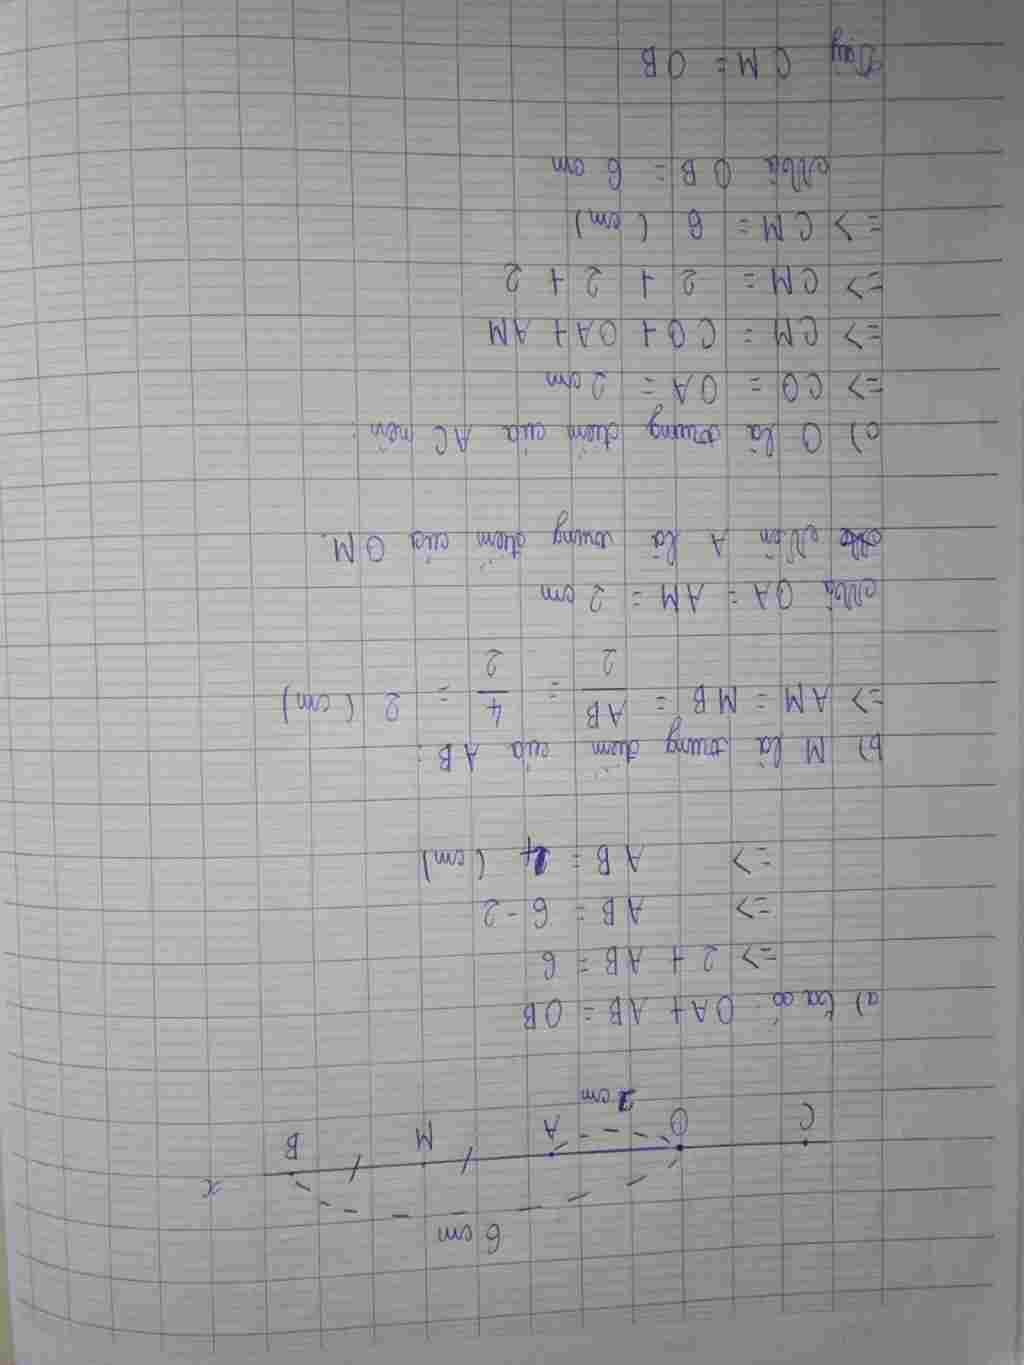 6 cm
C O A M B x
2 cm
a) Ta có: OA + AB = OB
=> 2 + AB = 6
=> AB = 6 - 2
=> AB = 4 (cm)
b) M là trung điểm của AB:
=> AM = MB = AB/2 = 4/2 = 2 (cm)
Mà OA = AM = 2 cm
Nên A là trung điểm của OM.
c) O là trung điểm của AC nên:
=> CO = OA = 2cm
=> CM = CO + OA + AM
=> CM = 2 + 2 + 2
=> CM = 6 (cm)
Mà OB = 6 cm
Vậy CM = OB